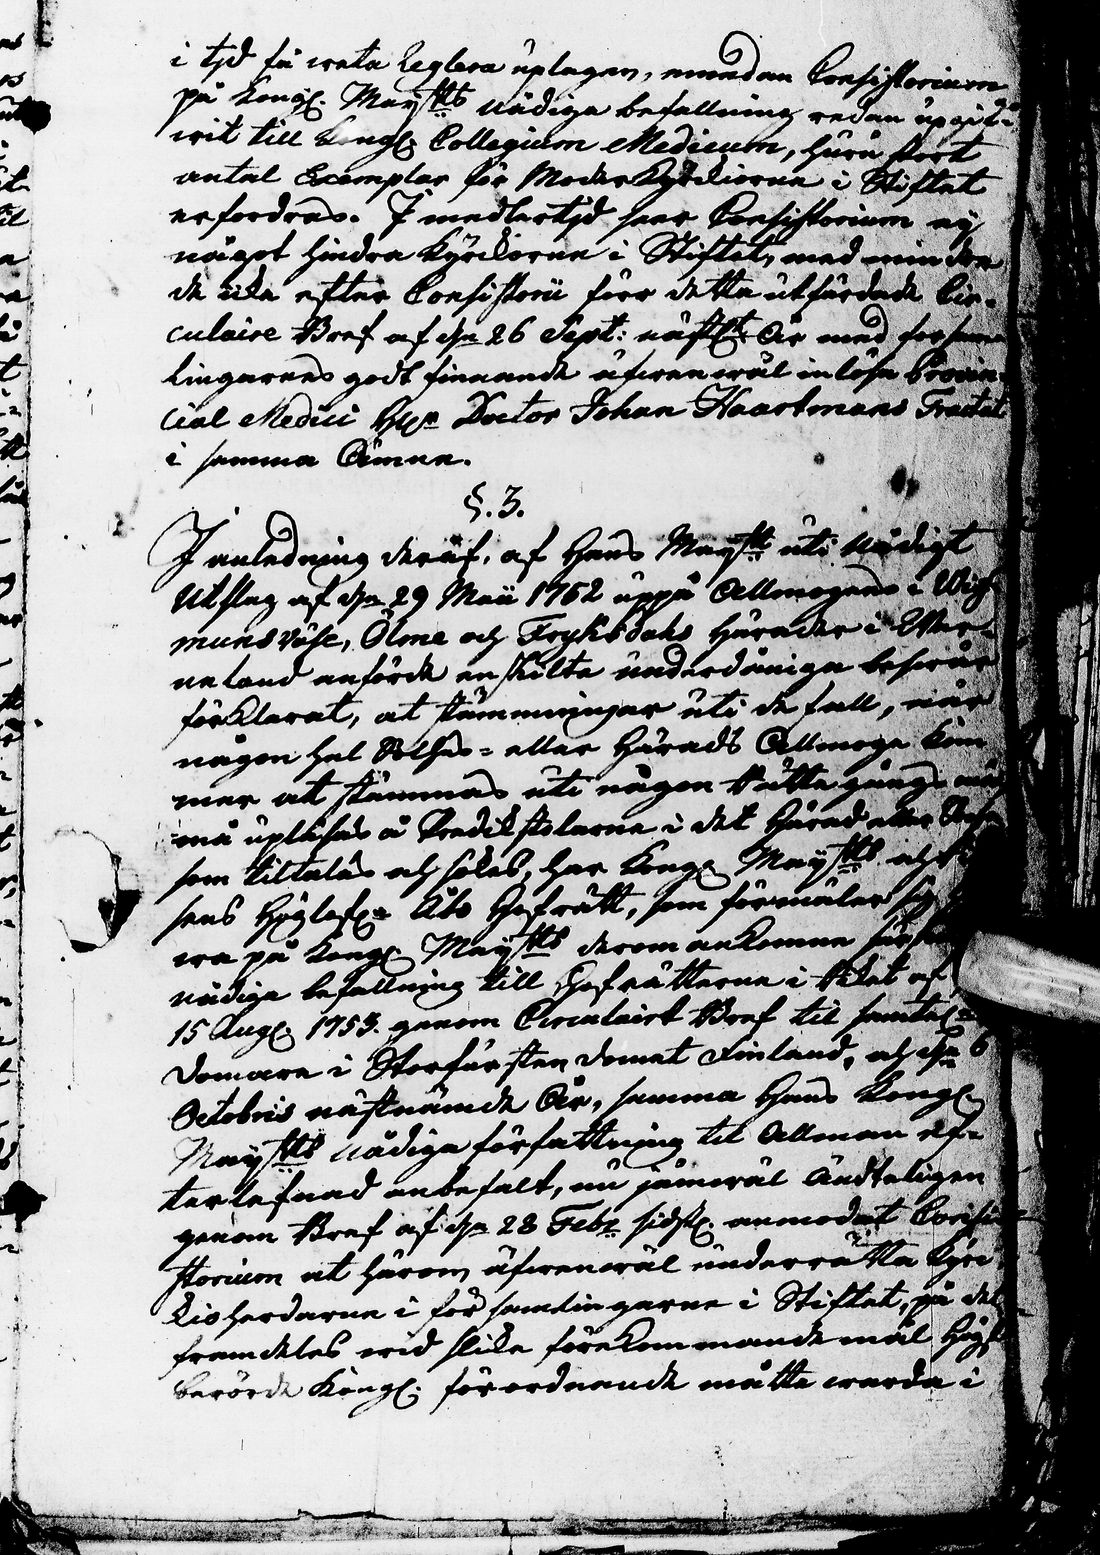 i tjd få weta Reglera uplagan, emedan Consistorium
på Kongl. Maÿ:tts Nådiga befallning redan upgif-
wit till Kongl. Collegium Medicum, huru stort
antal Exemplar för Moder Kyrckiorne i Stiftet
erfordras. I medlertjd hear Consistorium eÿ
något hindra Kyrckiorne i Stiftet, med mindre
de icke efter Consistorii förr detta utfärdade Cir-
culaire Bref af d. 26 Sept: näst: År med försam-
lingarnes godt finnande äfwenwäl inlösa Provin-
cial Medici H:r Doctor Johan Haartmans Tractat
i samma Ämne.
§. 3.
I anledning deraf, at Hans Maÿ:tt uti Nådigt
Utslag af d. 29 Maii 1752 uppå Allmogens i Wis-
nums Wäse, Ölme och Fryksdahls Härader i Wer-
meland anförde enskilte underdåniga beswär
förklarat, at stämningar uti de fall, när
någon hel Sochne- eller Härads Allmoge kom
mer at stämmas uti någon Rättegång, ej
må upläsas å Predikstolarne i det Härad eller Sochn
som tiltalas och sökes, har Kongl. Maÿ:tts och Ri-
sens Höglofl. Åbo Hofrätt, som förmäler sig
wa på Kongl. Maÿ:tts derom ankomne
nådiga befallning till Hofrätterne i Riket af
15 Aug. 1753. genom Circulairt Bref til samtel.
Domare i Storfurstendömet Finland, och d. 6
Octobris nästnämde År, samma Hans Kongl.
Maÿ:tts Nådiga författning til Allmän ef-
terlefnad anbefalt, nu jämwäl ändteligen
genom Bref af d. 28 Febr. sidstl. anmodat Consi-
storium at härom äfwenwäl underrätta Kyrc-
kioherdarne i församlingarne i Stiftet, på det
framdeles wid slike förekommande mål Högst
berörde Kongl. förordnande måtte warda i